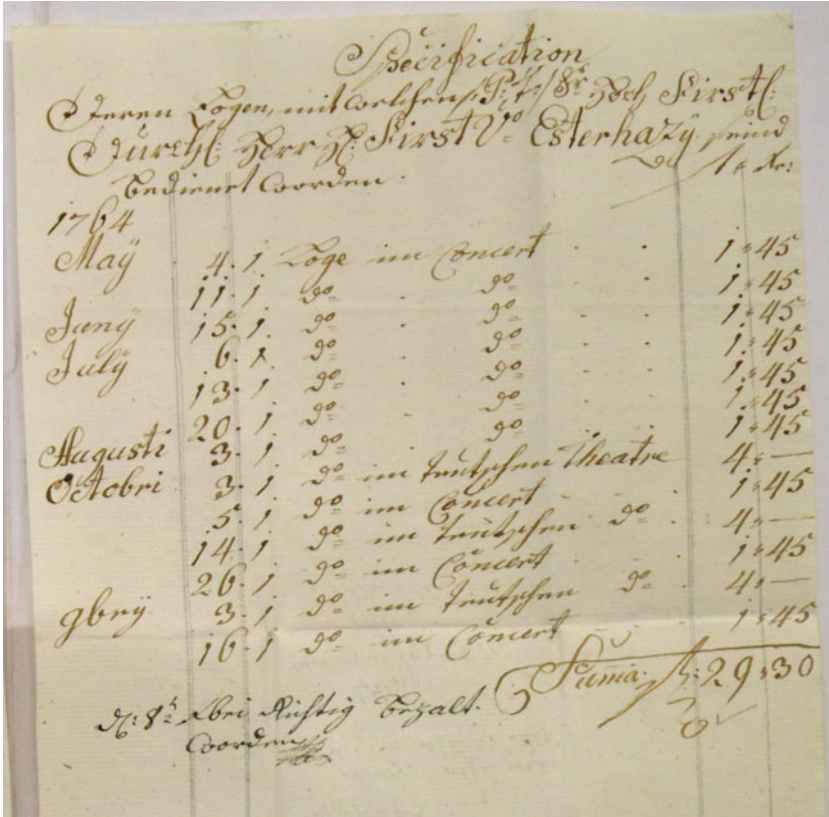 Specification
Deren Logen, mit welchen /:P: T:/ Sr Hoch Fürstl:
Durchl: Herr H: Fürst V: Esterhazÿ seind
bedienet worden. f " Xr:
1764
Maÿ 4. 1 Loge im Concert . . 1 " 45
11. 1 do . do . . 1 " 45
Junÿ 15. 1. do . do . . 1 " 45
Julÿ 6. 1. do . do . . 1 " 45
13. 1 do . do . . 1 " 45
20. 1 do . do . . 1 " 45
Augusti 3. 1 do . do . . 1 " 45
Octobri 3. 1 do im teutschen Theatre 4 " —
5. 1 do im Concert . . 1 " 45
14. 1 do im teutschen do . 4 " —
26. 1 do im Concert . . 1 " 45
9brÿ 3. 1 do im teutschen do . 4 " —
16. 1 do im Concert . . 1 " 45
Summa: f: 29 " 30
richtig bezalt
worden